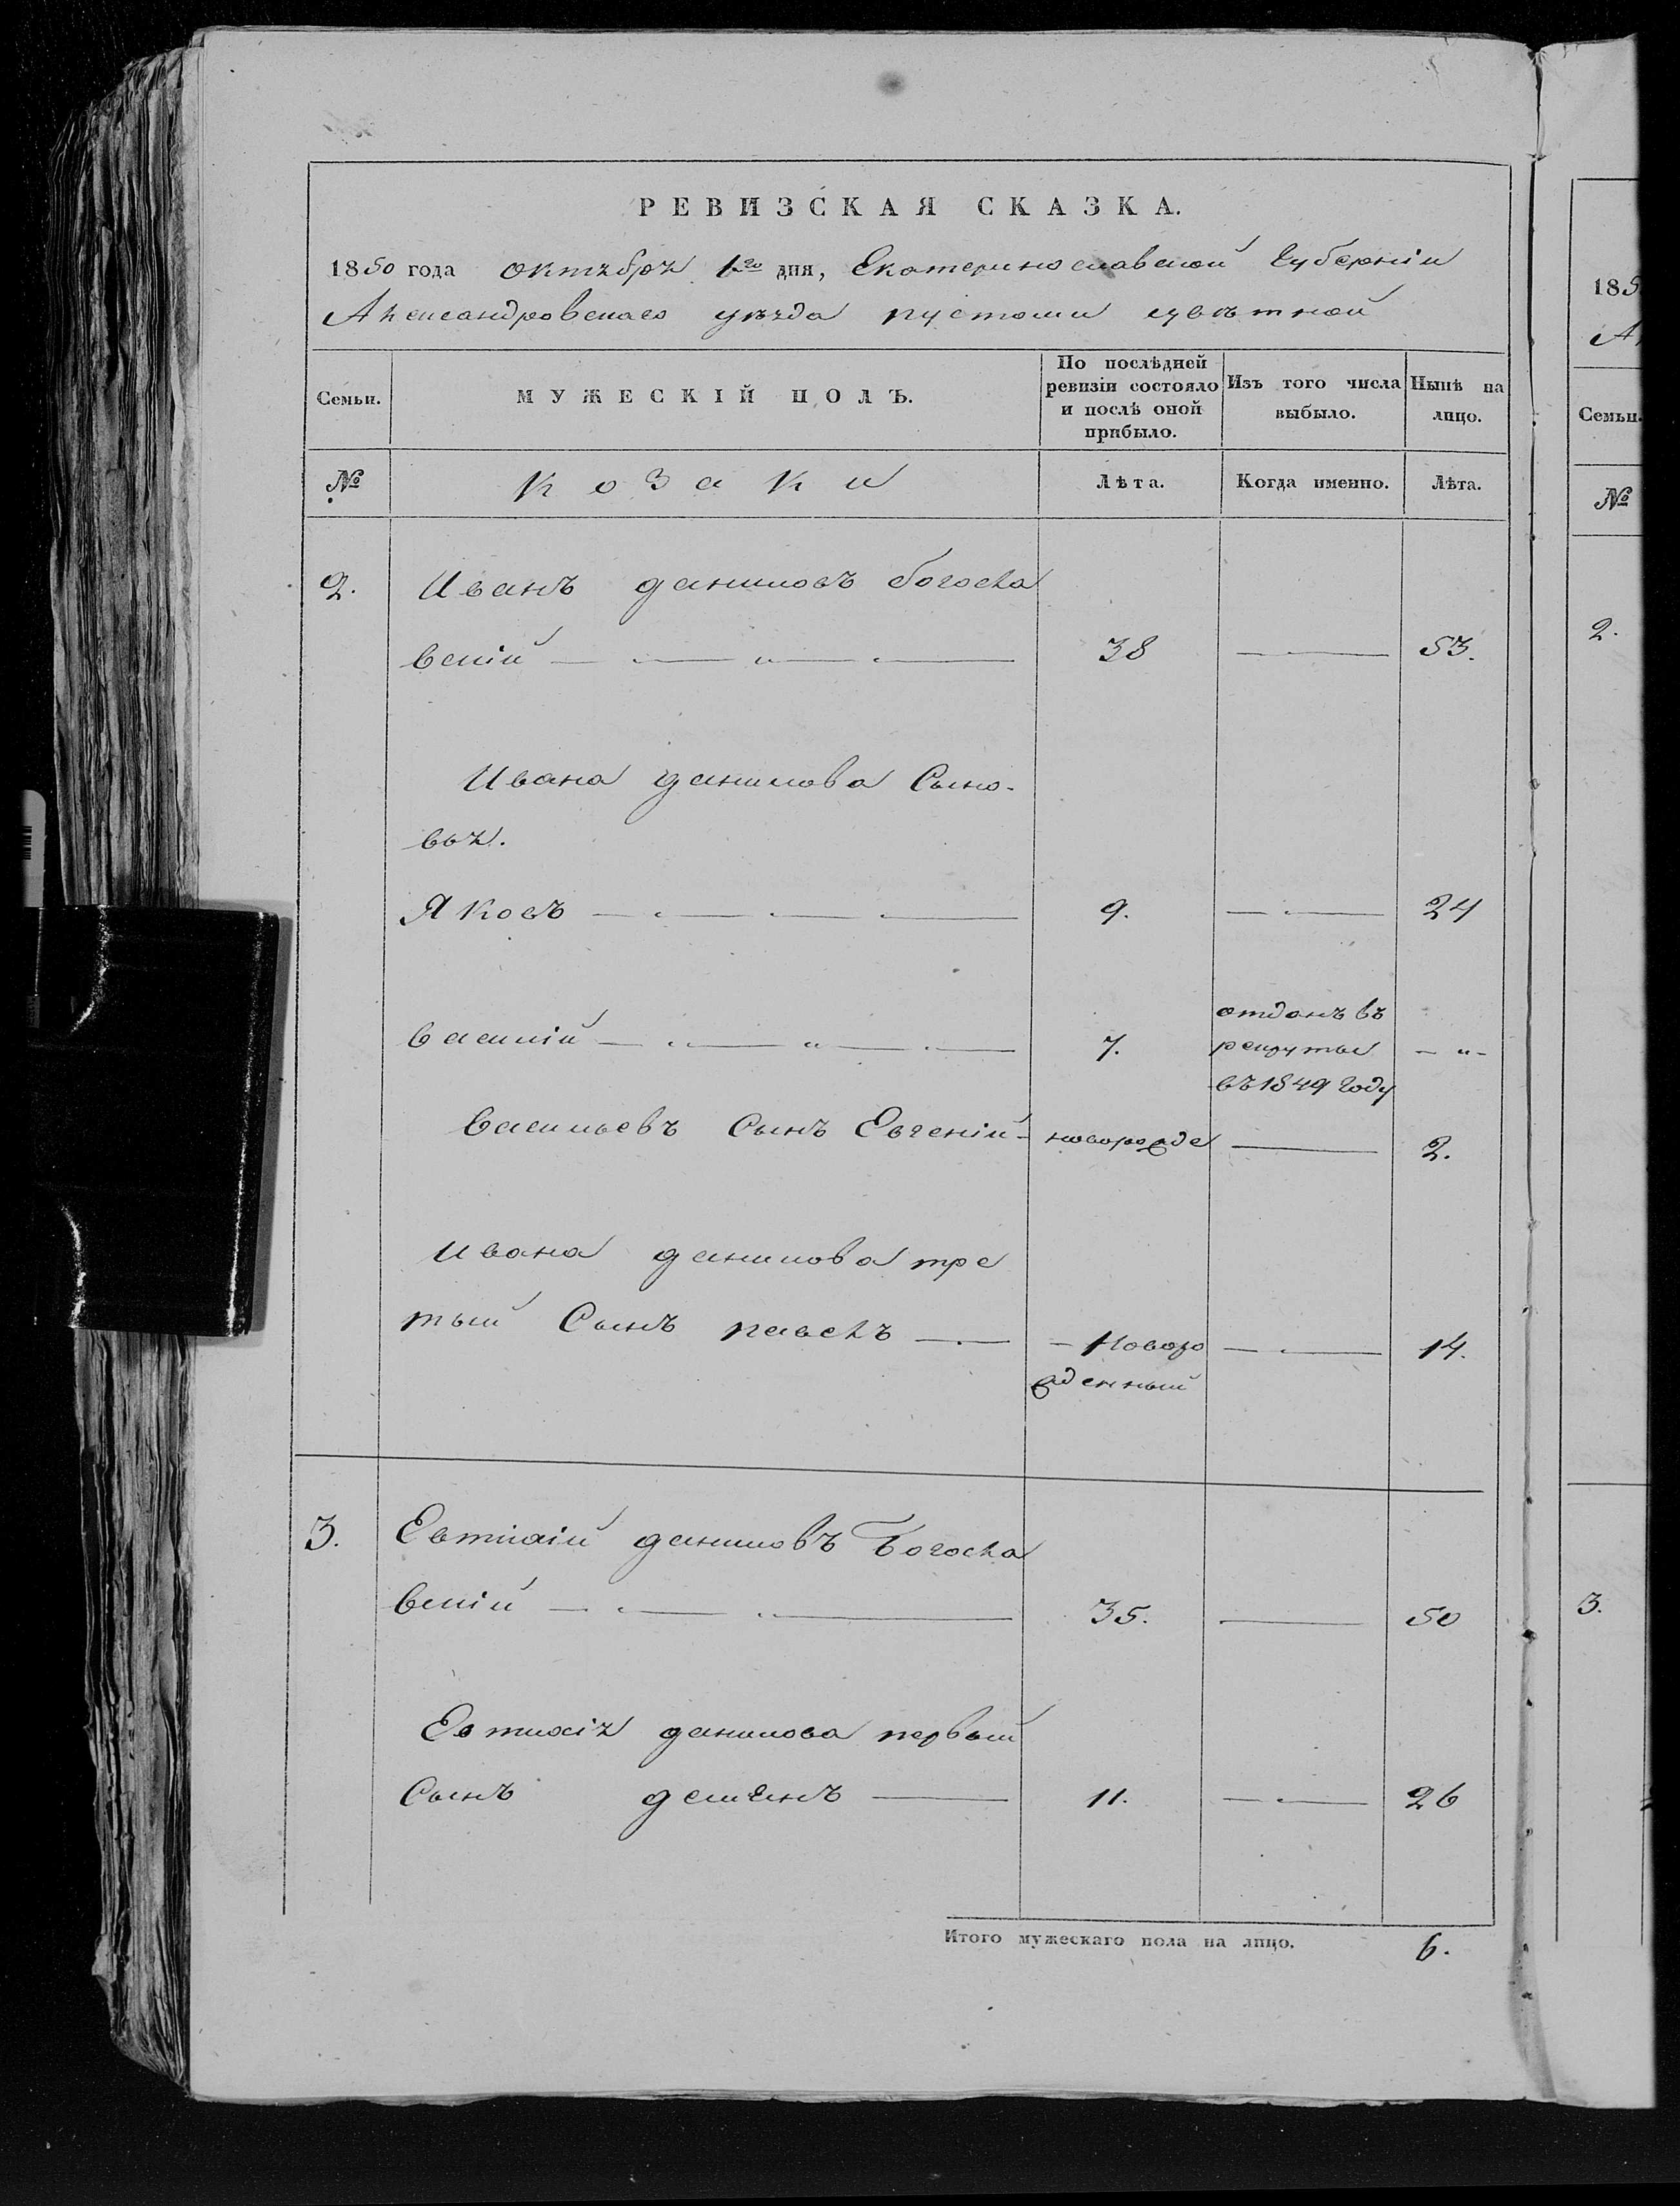 РЕВИЗСКАЯ СКАЗКА.
1850 года октября 1го дня, Екатеринославской Губерніи
Александровскаго уѣзда пустоши цвѣтной
Семьи. МУЖЕСКІЙ ПОЛЪ. По послѣдней ревизіи состояло и послѣ оной прибыло. Изъ того числа выбыло. Нынѣ на лицо.
№ козаки Лѣта. Когда именно. Лѣта.
2. Иванъ даниловъ богосла
вскій 38 53.
Ивана данилова Сыно-
вья.
Яковъ 9. 24
отданъ въ
василій 7. рекруты - " -
въ 1849 году
васильевъ Сынъ Евгеній - новорожде 2.
ивана данилова тре
тый Сынъ павелъ - Новоро 14.
жденный
3. Евтихій даниловъ Богосла
вскій 35. 50
Евтихія данилова первый
Сынъ 11. 26
Итого мужескаго пола на лицо. 6.
185
А
Семьи.
№
2.
3.